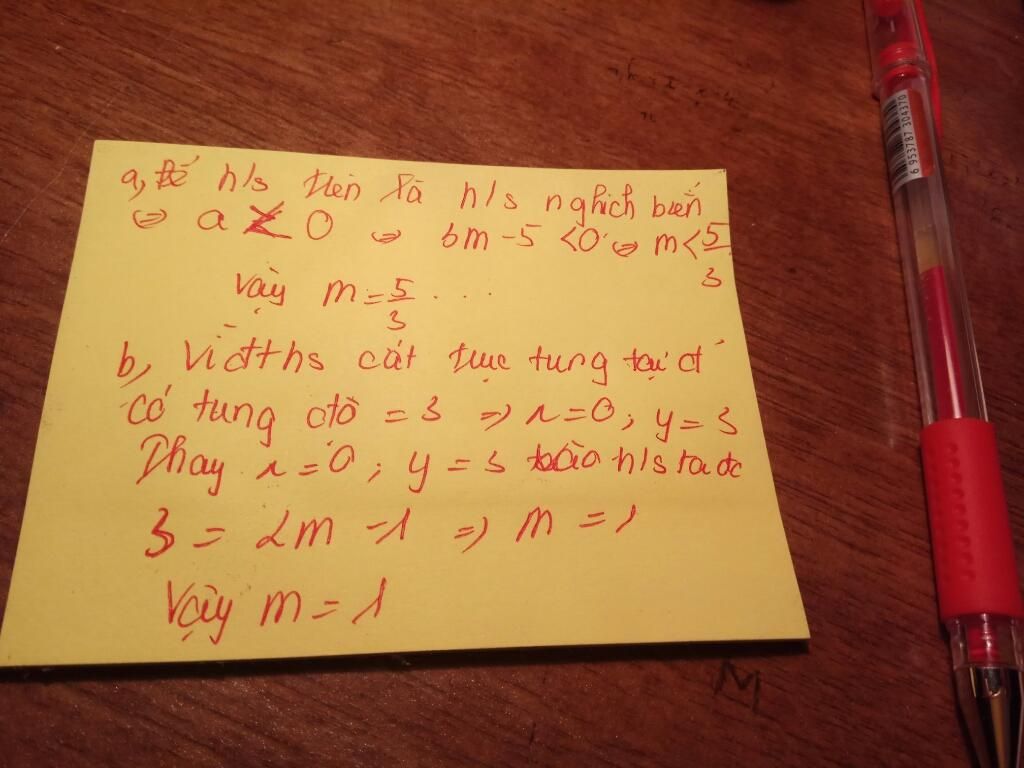 a, Để h/s trên là h/s nghịch biến
⇔ a < 0 ⇔ 6m - 5 < 0 ⇔ m < 5/3
Vậy m = 5/3 . . .
b, Vì đths cắt trục tung tại đ
có tung độ = 3 => x = 0 ; y = 3
Thay x = 0 ; y = 3 vào h/s ta đc
3 = 2m - 1 => m = 1
Vậy m = 1
6 953787 304370
M